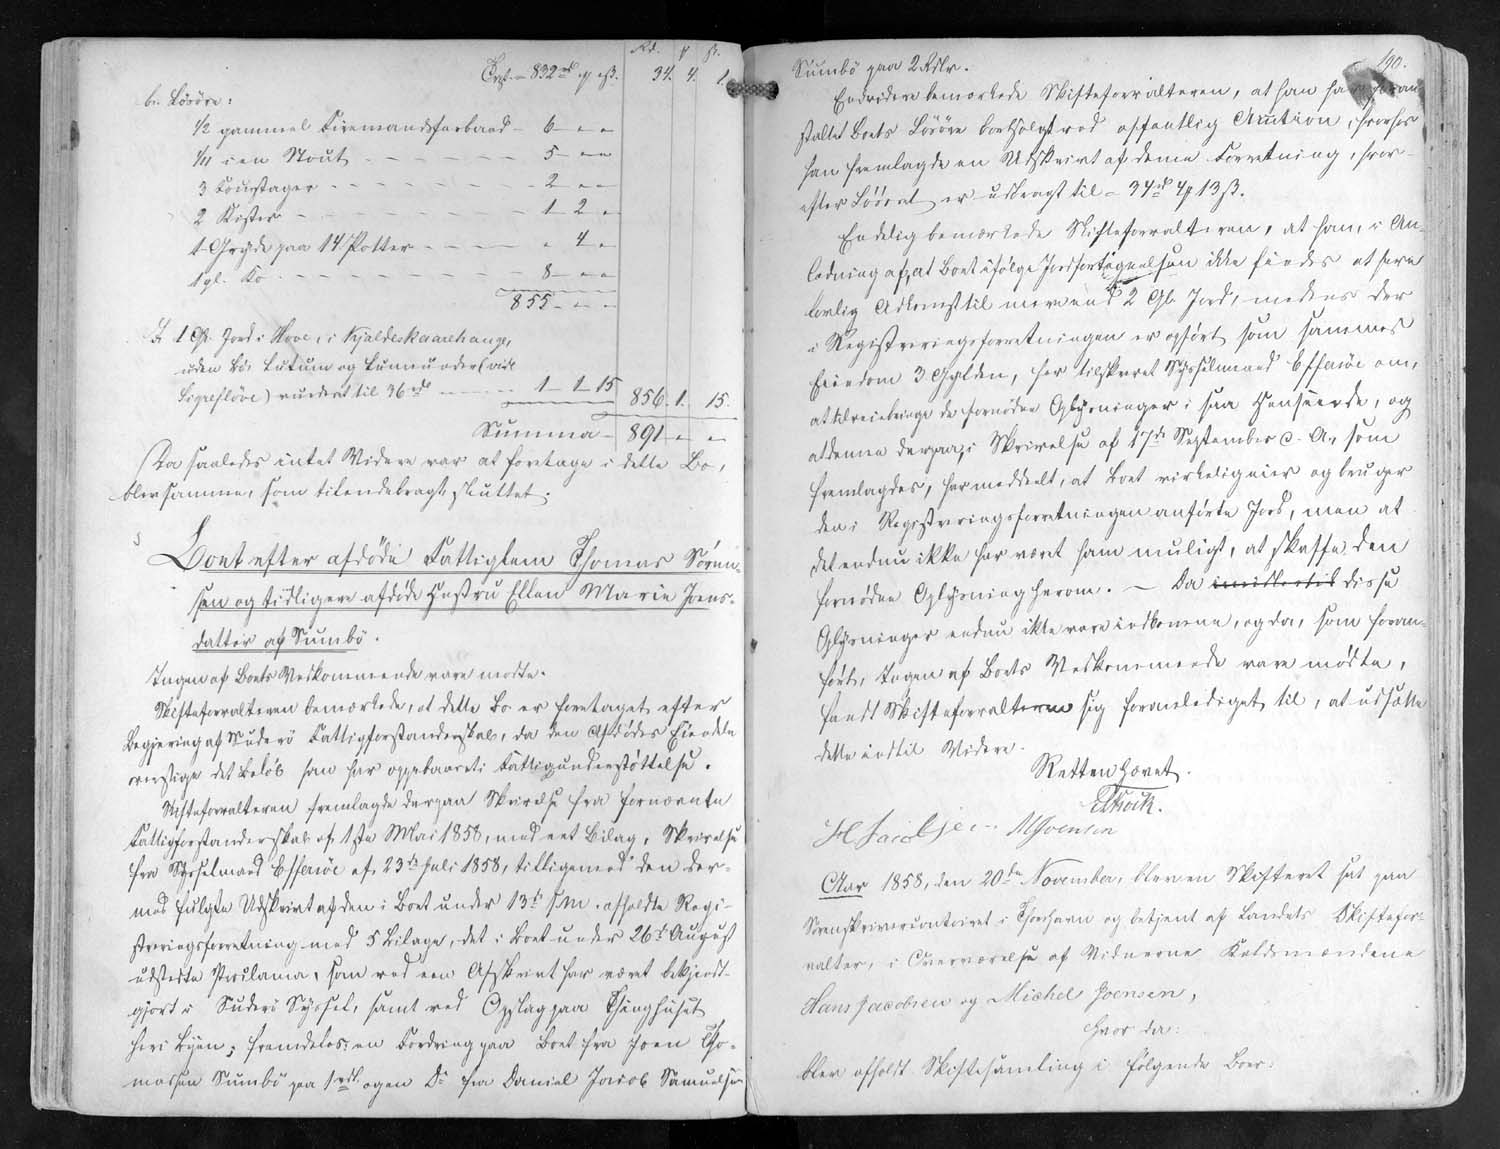 Rd. ₰ ß.
Trsp. – 832 rd " ₰ " ß. 34. 4. 1.
b. Lösöre:
1/2 gammel Firemandsfarbaad – 6 – " "
1/11 i en Stout – 5 – " "
3 Toustager – 2 – " "
2 Kister – 1 2 – "
1 Gryde paa 14 Potter – " 4 – "
1 gl. Ko – 8 – " "
855 – " – "
1 Gl. Jord i Hove, i Kjaldeskaarehauge,
uden Bö, Lutum og Lunnunder (vide
Sigrefløve) vurderet til 36 rd – 1 – 1 – 15 856. 1. 15.
Summa – 891 – " – "
Da saaledes intet Videre var at foretage i dette Bo,
blev samme, som tilendebragt, sluttet.
Boet efter afdøde Fattiglem Thomas Sören-
sen og tidligere afdøde Hustru Ellen Marie Joens-
datter af Sumbö.
Ingen af Boets Vedkommende vare mødte.
Skifteforvalteren bemærkede, at dette Bo er foretaget efter
Begjering af Suderö Fattigforstanderskab, da den Afdødes Eiendele
overstige det Beløb han har oppebaaret i Fattigunderstøttelse.
Skifteforvalteren fremlagde derpaa Skrivelse fra fornævnte
Fattigforstanderskab af 1ste Mai 1858, med eet Bilag, Skrivelse
fra Sysselmand Effersöe af 23de Juli 1858, tilligemed den der-
med fulgte Udskrivt af den i Boet under 13de s. M. afholdte Regi-
streringsforretning med 5 Bilage, det i Boet under 26de August
udstedte Proclama, som ved een Afskrivt har været bekjendt-
gjort i Suderö Syssel, samt ved Opslag paa Thinghuset
her i Byen; fremdeles: en Fordring paa Boet fra Joen Tho-
massen Sumbö paa 1 rd. og en Do fra Daniel Jacob Samuelsen
190.
Sumbö paa 2 Rdlr.
Endvidere bemærkede Skifteforvalteren, at han har foran-
staltet Boets Lösöre bortsolgt ved offentlig Auction, hvorhos
han fremlagde en Udskrivt af denne Forretning, hvor-
efter Lösöret er udbragt til – 34 rd 4 ₰ 13 ß.
Endelig bemærkede Skifteforvalteren, at han, i An-
ledning af, at Boet ifølge Jordfortegnelsen ikke findes at have
lovlig Adkomst til mere end 2 Gl. Jord, medens der
i Registreringsforretningen er opført som sammes
Eiendom 3 Gylden, har tilskrevet Sysselmand Effersöe om,
at tilveiebringe de fornødne Oplysninger i saa Henseende, og
at denne derpaa, i Skrivelse af 17de September d. A., som
fremlagdes, har meddeelt, at Boet virkelig eier og bruger
den i Registreringsforretningen anførte Jord, men at
det endnu ikke har været ham muligt, at skaffe den
fornødne Oplysning herom. – Da imidlertid disse
Oplysninger endnu ikke vare indkomne, og da, som foran-
ført, Ingen af Boets Vedkommende vare mødte,
fandt Skifteforvalteren sig foranlediget til, at udsætte
dette indtil Videre.
Retten hævet.
H Jacobsen MJoensen
Aar 1858, den 20de November, blev en Skifteret sat paa
Sorenskrivercontoiret i Thorshavn og betjent af Landets Skiftefor-
valter, i Overværelse af Vidnerne Kaldsmændene
Hans Jacobsen og Michel Joensen,
hvor da:
blev afholdt Skiftesamling i følgende Boer: